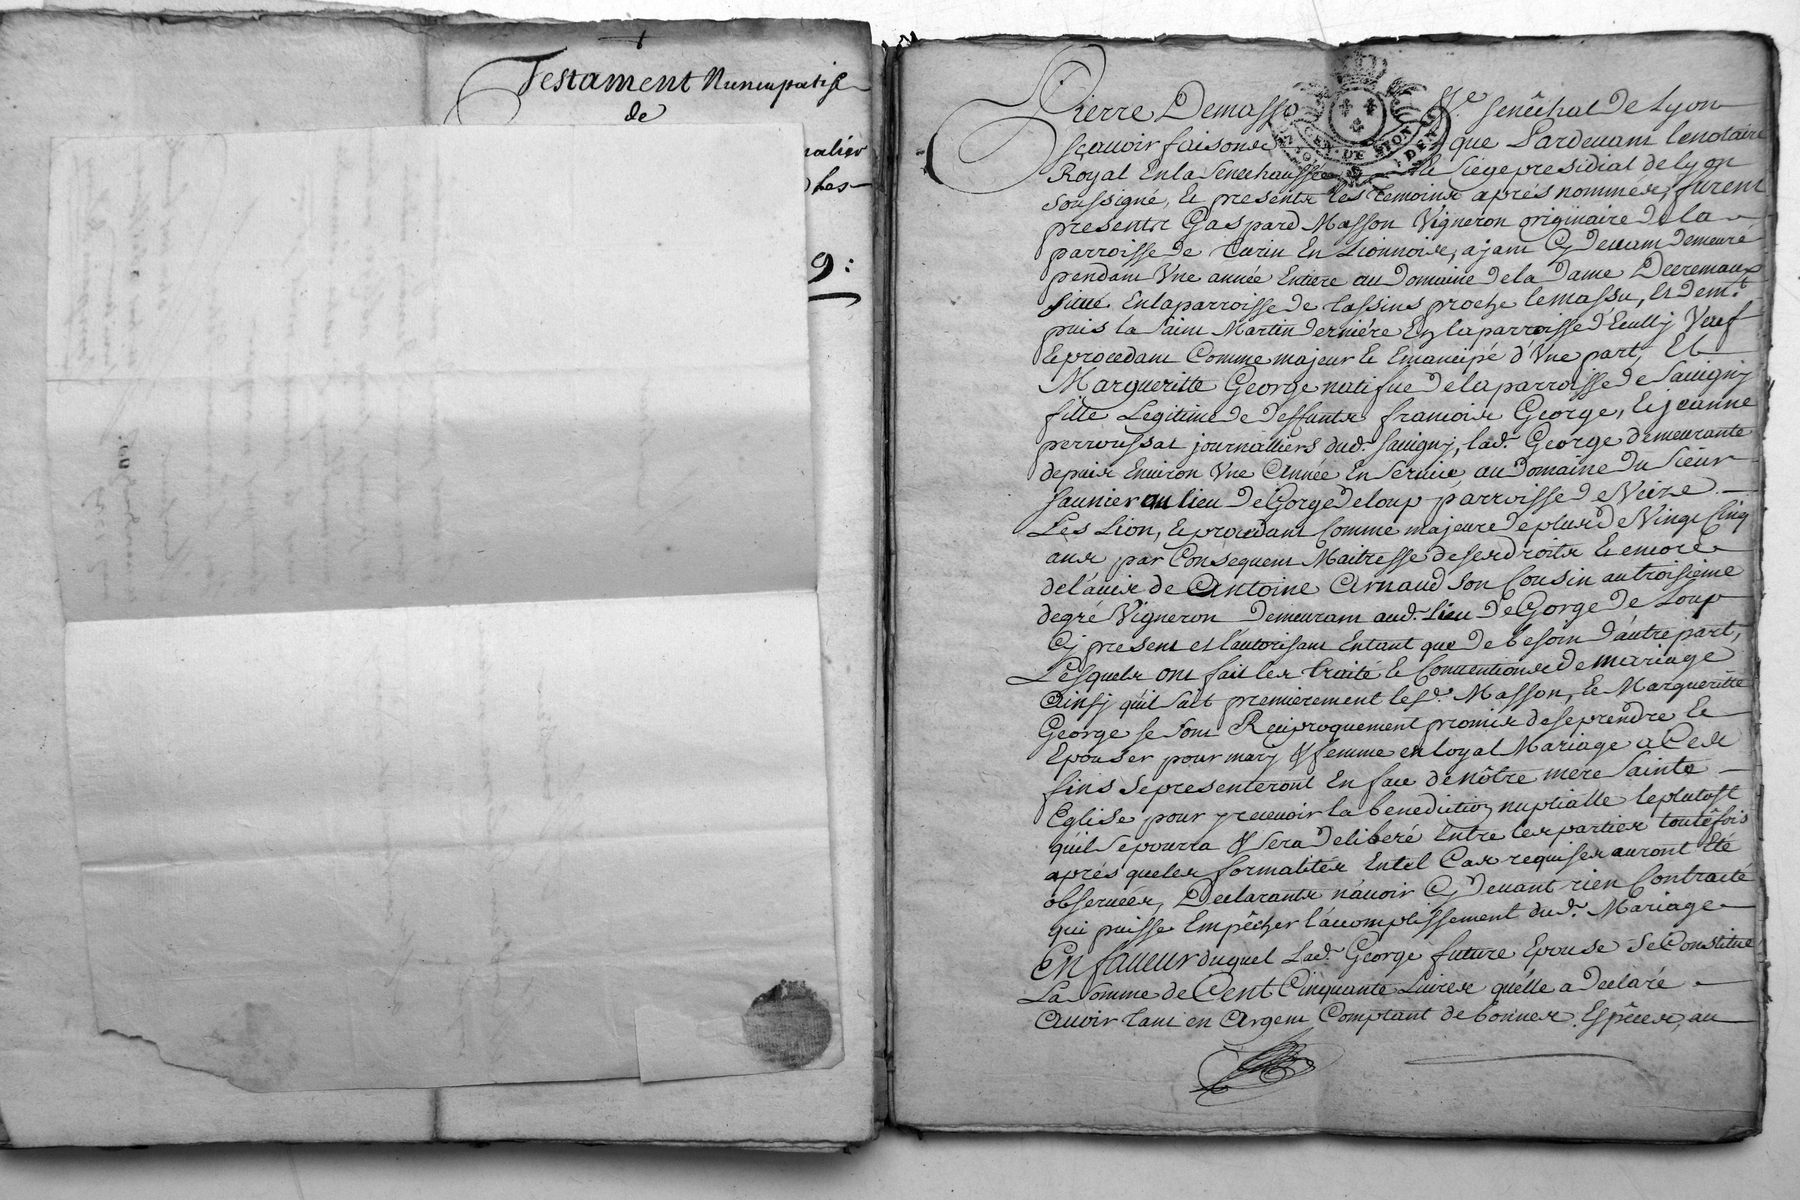 Testament Nuncupatif
de
9:
Pierre Demasso Sénêchal de Lyon
sçavoir faisons que Pardevant le notaire
Royal En la Senechaussée Siege presidial de Lyon
soussigné, et presents les temoins aprés nommes, furent
presents Gaspard Masson Vigneron originaire de la
parroisse de En Lionnois, ajant Cy devant demeuré
pendant Une année Entiere au Domaine de la Dame
située En la parroisse de tassins proche le massu, Et demt.
puis la saint Martin derniére En la parroisse d'Ecully Veuf
Et procedant Comme majeur Et Emancipé d'Une part, Et
Margueritte George natifue de la parroisse de Savigny
fille Legitime de deffunts francois George, Et Jeanne
perroussat journalliers dud. Savigny, lad. George demeurante
depuis Environ Une Année En Service au Domaine du Sieur
Saunier au lieu De Gorge de loup parroisse de Veize
Les Lion, Et procedant Comme majeure de plus de Vingt Cinq
ans par Consequent Maitresse de ses droits Et encore
de l'avis de Antoine Arnaud son Cousin au troisiéme
degré Vigneron Demeurant aud. Lieu de Gorge de Loup
Cy present et l'autorisant Entant que de besoin d'autre part,
Lesquels ont fait les traité Et Conventions de mariage
Ainsy qu'il sait premierement led. Masson, Et Margueritte
George se sont Reciproquement promis de se prendre Et
Epouser pour mary & femme en loyal Mariage a Ces
fins se presenteront En face de nôtre mere Sainte
Eglise pour y recevoir la benediction nuptialle le plutost
qu'il se pourra & sera deliberé Entre les parties toutefois
aprés que les formalités En tel Cas requises auront Eté
observées, Declarants n'avoir Cy devant rien Contracté
qui puisse Empêcher l'accomplissement dud. Mariage
En faveur duquel Lad. George future Epouse se Constitue
La somme de Cent Cinquante Livres qu'elle a declaré
Avoir tant en Argent Comptant de bonnes Espêces, au